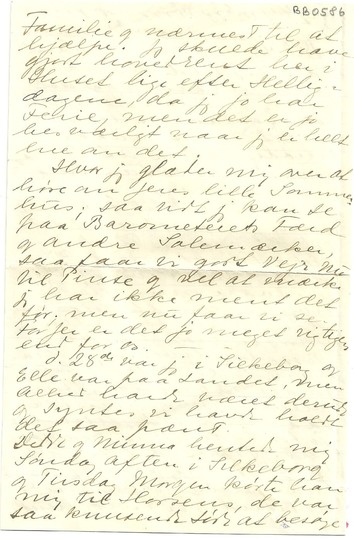 BB0586
Familie og nærmest til at
hjælpe. Jeg skulde have
gjort hovedrent her i
Huset lige efter Hellig-
dagene, da jeg jo har
Ferie, men det er jo
besværligt naar jeg er helt
ene om det.
Hvor jeg glæder mig over at
høre om Jeres lille Sommer
hus; saa vidt jeg kan se
paa Barometerets Færd
og andre Solemærker,
saa faar vi godt Vejr nu
til Pinse og vel at mærke
vi har ikke ment det
før, men nu faar vi se.
For Jer er det jo meget vigtigere
end for os.
d. 28de var jeg i Silkeborg og
Elle var paa Landet, men
Allerd havde været derude
og syntes vi havde holdt
det saa pænt.
Ditte og Mimma hentede mig
Søndag Aften i Silkeborg
og Tirsdag Morgen kørte han
mig til Horsens, de var
saa knusende søde at besøge